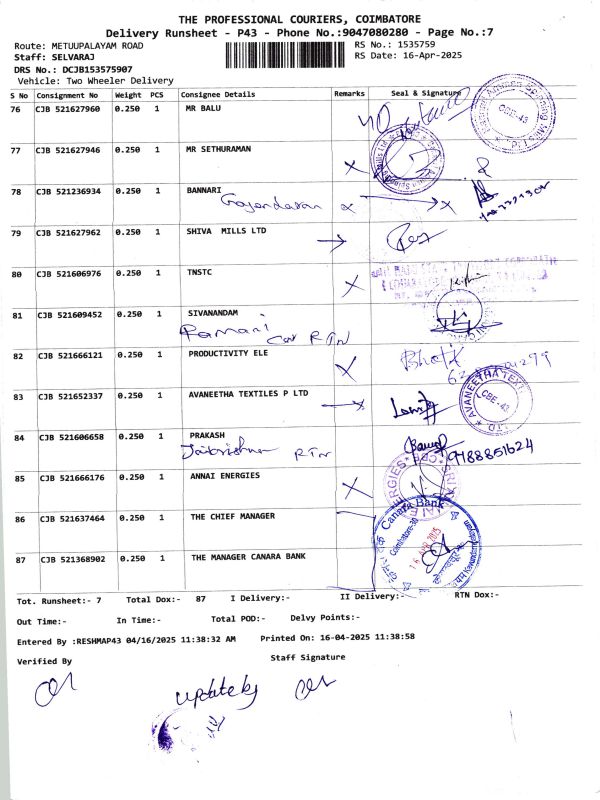 THE PROFESSIONAL COURIERS, COIMBATORE
Delivery Runsheet - P43 - Phone No.:9047080280 - Page No.:7
Route: METUUPALAYAM ROAD
RS No.: 1535759
Staff: SELVARAJ
RS Date: 16-Apr-2025
DRS No.: DCJB153575907
Vehicle: Two Wheeler Delivery
S No Consignment No Weight PCS Consignee Details Remarks Seal & Signature
76 CJB 521627960 0.250 1 MR BALU
CBE-43
77 CJB 521627946 0.250 1 MR SETHURAMAN
78 CJB 521236934 0.250 1 BANNARI
79 CJB 521627962 0.250 1 SHIVA MILLS LTD
80 CJB 521606976 0.250 1 TNSTC
81 CJB 521609452 0.250 1 SIVANANDAM
Ramani RTN
82 CJB 521666121 0.250 1 PRODUCTIVITY ELE
83 CJB 521652337 0.250 1 AVANEETHA TEXTILES P LTD
AVANEETHA TEXTI
CBE-43
LTD
84 CJB 521606658 0.250 1 PRAKASH
RTN 9788851624
85 CJB 521666176 0.250 1 ANNAI ENERGIES
86 CJB 521637464 0.250 1 THE CHIEF MANAGER
Canara Bank
16 APR 2025
87 CJB 521368902 0.250 1 THE MANAGER CANARA BANK
Tot. Runsheet:- 7 Total Dox:- 87 I Delivery:- II Delivery:- RTN Dox:-
Out Time:- In Time:- Total POD:- Delvy Points:-
Entered By :RESHMAP43 04/16/2025 11:38:32 AM Printed On: 16-04-2025 11:38:58
Verified By Staff Signature
update by